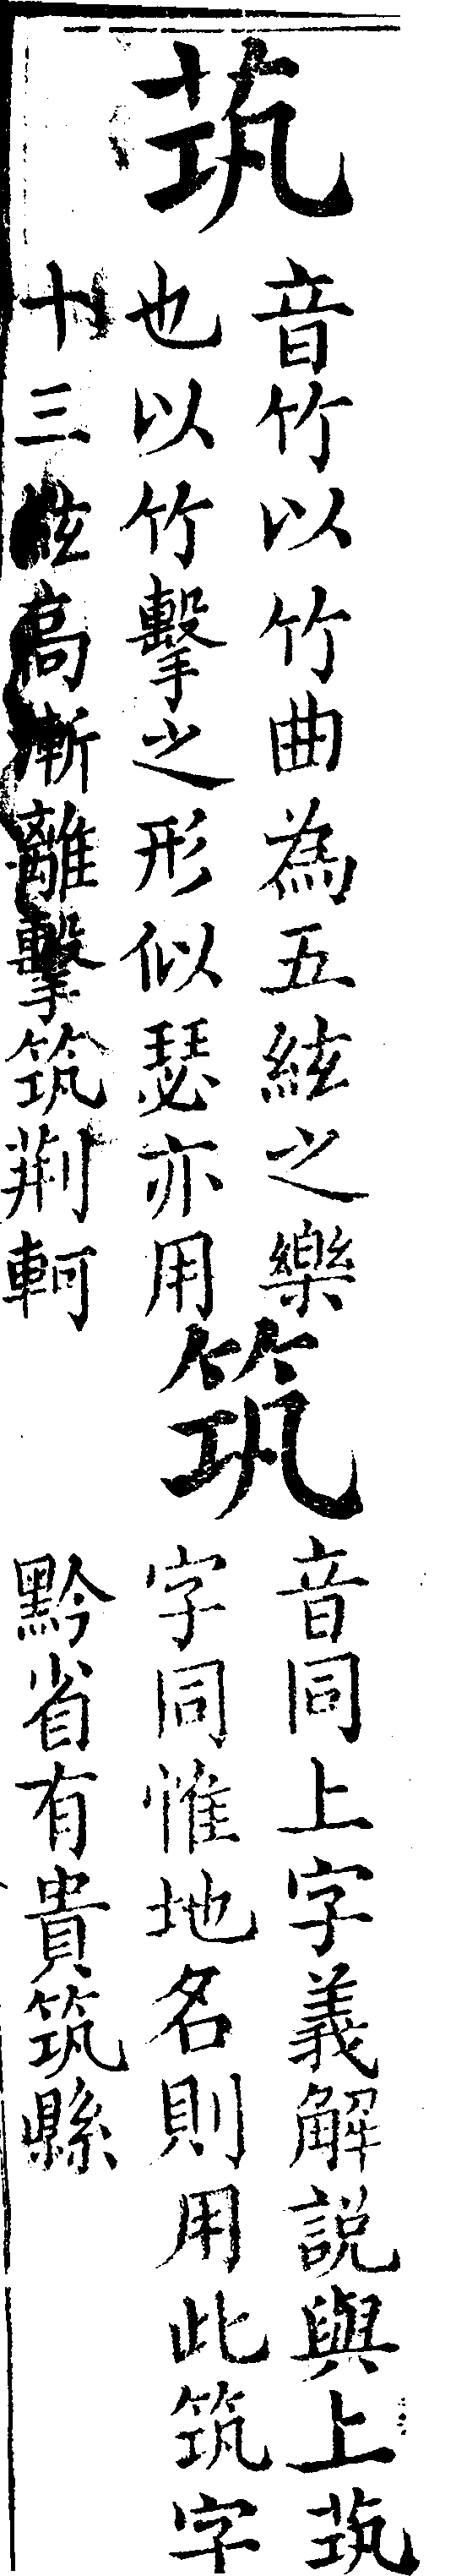 茿
音竹以竹曲為五絃之樂
也以竹擊之形似瑟亦用
十三絃高漸離擊筑荆軻
筑
音同上字義解説與上茿
字同惟地名則用此筑字
黔省有貴筑縣